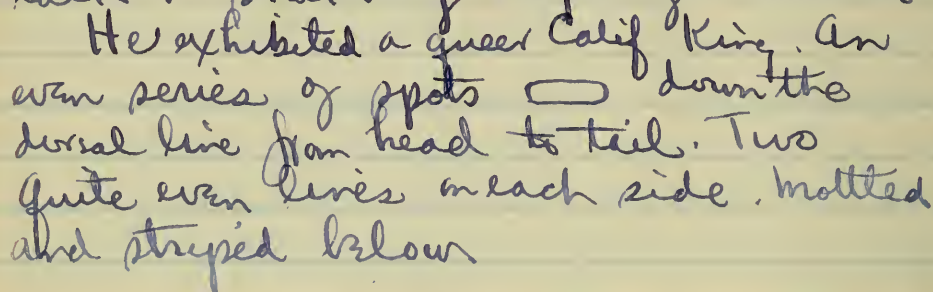 He exhibited a queer Calif King. An
even series of spots down the
dorsal line from head to tail. Two
quite even lines on each side. Mottled
and striped below